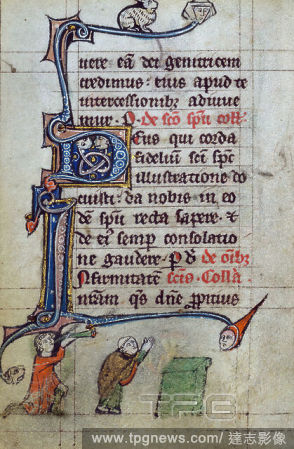 uere eā dei genitricem
credimus: eius apud te
intercessionibꝫ adiuue
mur. P. de scō spū coll.
Deus qui corda
fidelium scī spc
illustratione do
cuisti: da nobis in eo
dē spū recta sapere. &
de eꝰ semp consolatio
ne gaudere. P de oībꝫ
Infirmitatē scīs. Collā
nr̄am qs dn̄e ppitius
TPG
www.tpgnews.com / 達志影像